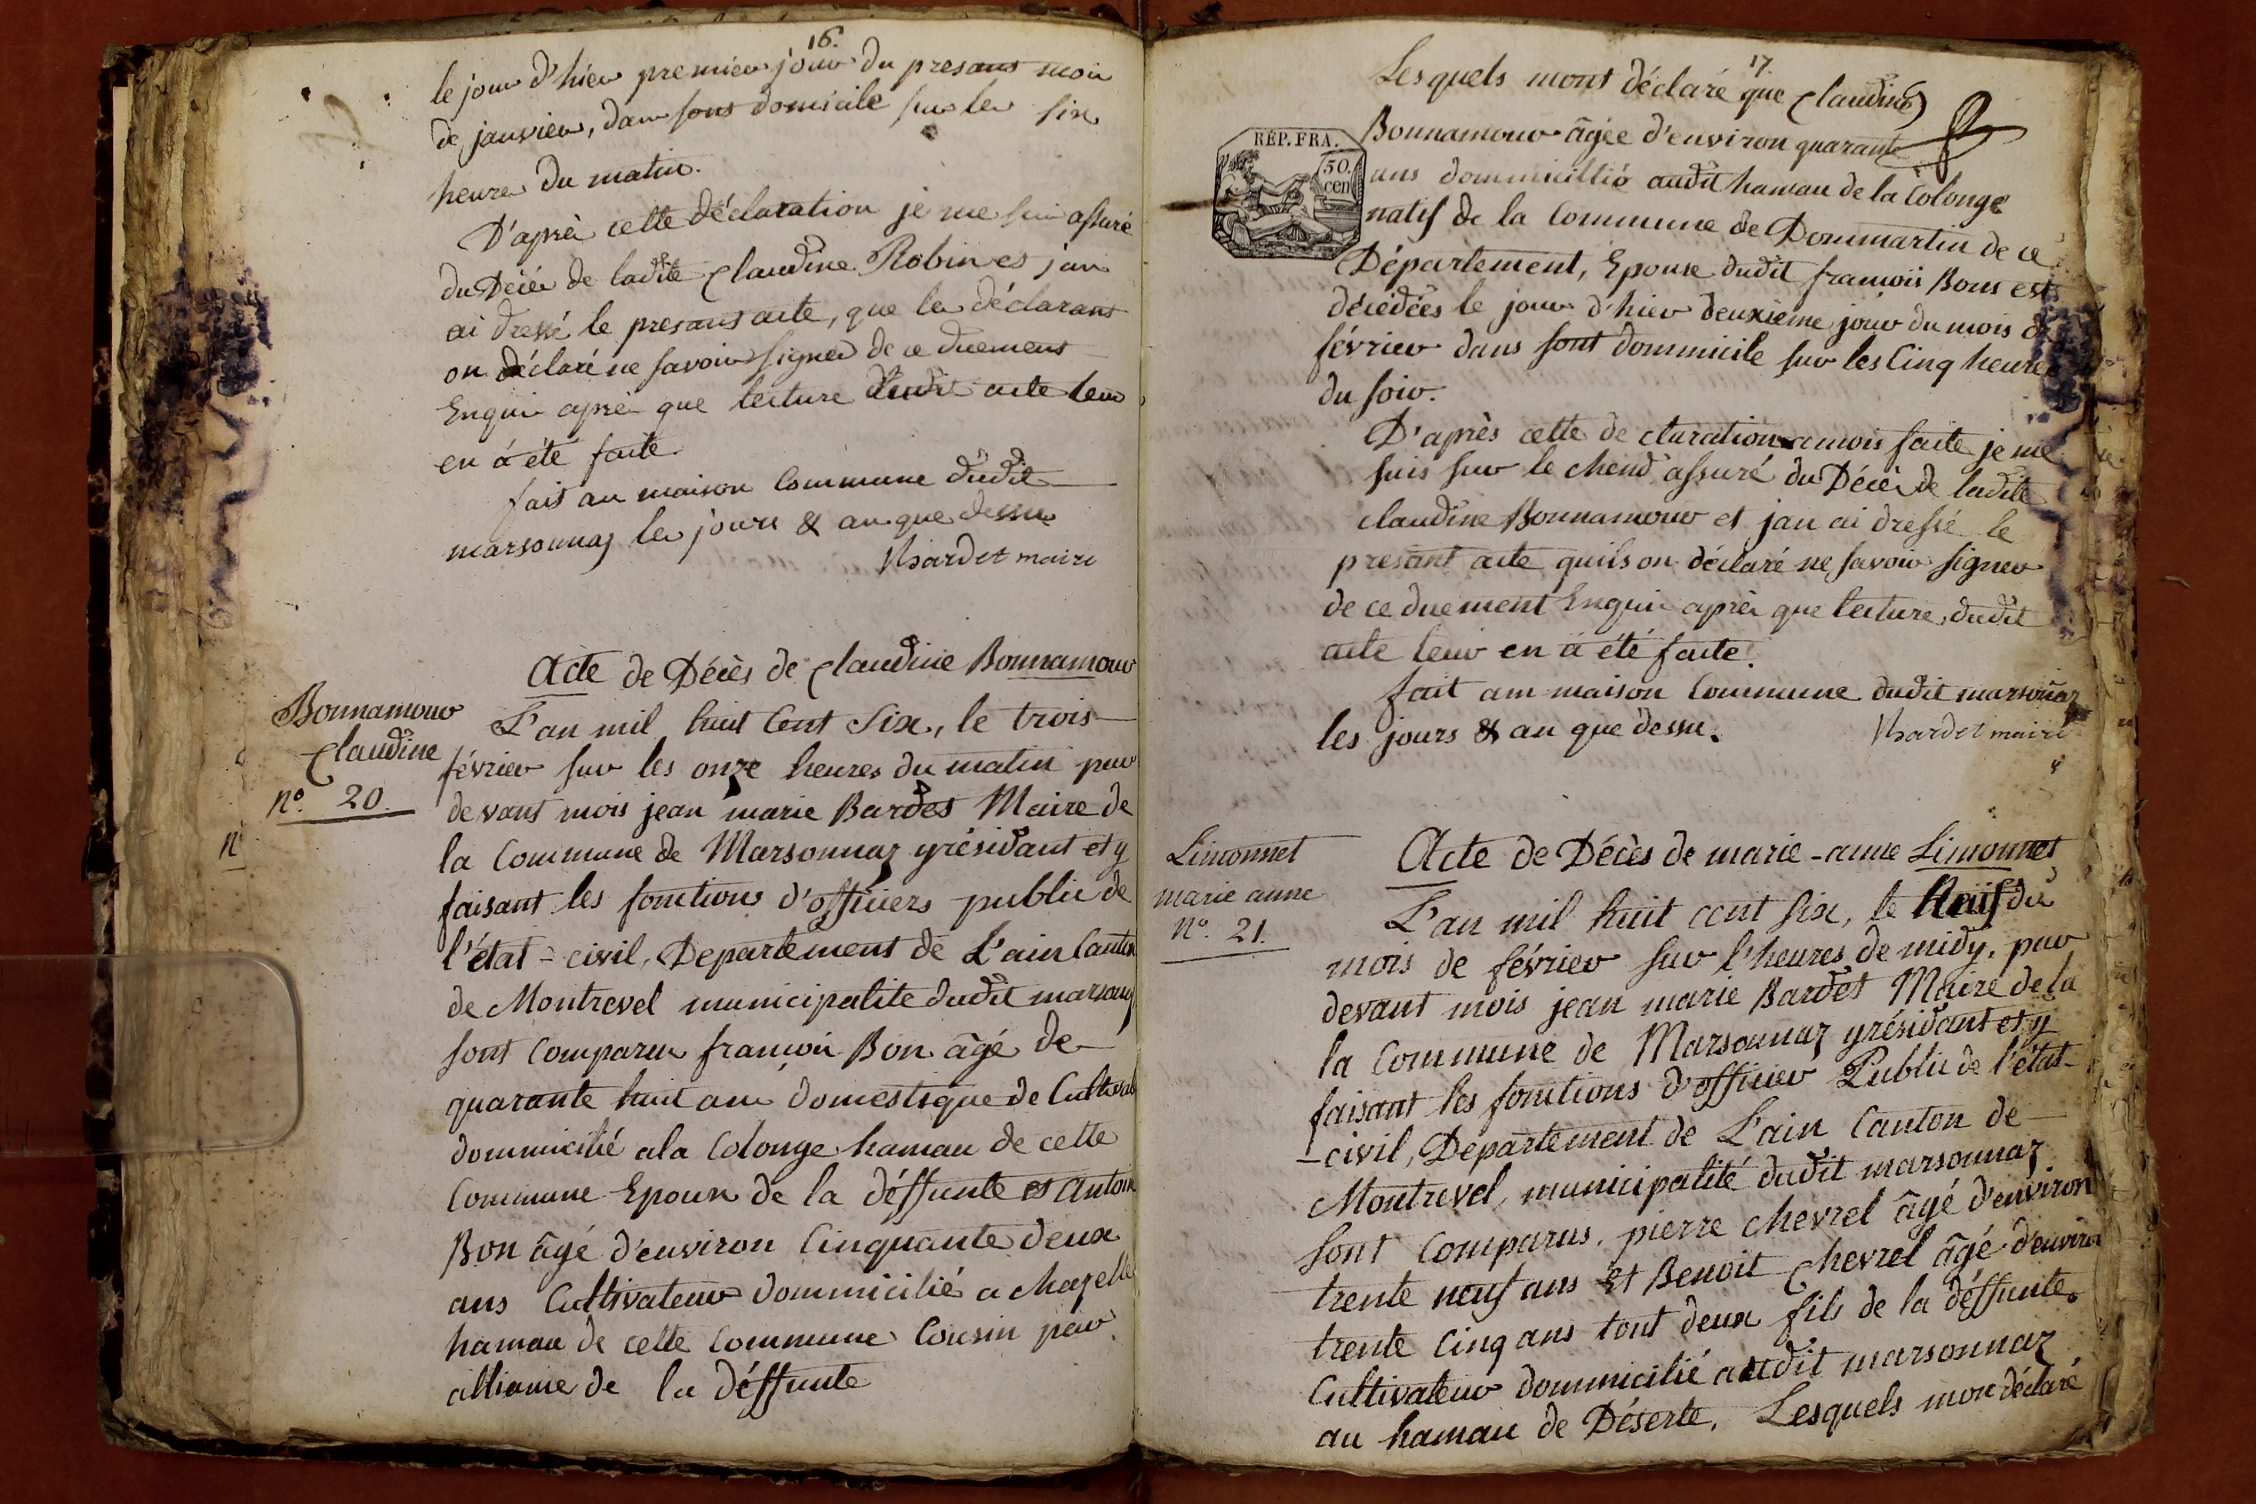 16.
le jour d'hier premier jour du presant mois
de janvier, dans sont domicile sur les six
heures du matin.
D'après cette déclaration je me suis assuré
du Décès de ladite Claudine Robin et jan
ai dressé le presant acte, que les déclarans
on déclaré ne savoir signer de ce duement
Enquis après que lecture dudit acte leur
en à été faite
fait au maison Commune dudit
marsonnaz les jours & an que dessus
Bardet maire
Acte de Décès de Claudine Bonnamour
Bonnamour
Claudine
n°. 20.
L'an mil huit Cent Six, le trois
février sur les onze heures du matin par
devant mois jean marie Bardet Maire de
la Commune de Marsonnaz y résidant et y
faisant les fonctions d'officiers public de
l'état-civil, Departement de L'ain Canton
de Montrevel municipalite dudit marsonnaz
sont Comparu françois Bon âgé de
quarante huit ans domestique de Cultivate
dommicilié ala Colonge hamau de cette
Commune Epoux de la déffunte et antoine
Bon âgé d'environ Cinquante deux
ans Cultivateur dommicilié a Chapelle
hamau de cette Commune Cousin par
alliance de la déffunte
n
17.
Lesquels mont déclaré que Claudine
RÉP. FRA.
50.
cen
Bonnamour âgée d'environ quarante
ans dommicillié audit hamau de la Colonge
natif de la Commune de Dommartin de ce
Département, Epouse dudit françois Bon est
décédées le jour d'hier deuxième jour du mois de
février dans sont dommicile sur les Cinq heures
du soir.
D'après cette de claration a mois faite je me
suis sur le chend assuré du Décès de ladite
Claudine Bonnamour et jan ai dressé le
presant acte quils on déclaré ne savoir signer
de ce duement Enquis après que lecture dudit
acte leur en à été faite.
fait am maison Commune dudit marsonnaz
les jours & an que dessu.
Bardet maire
Limonnet
marie anne
n°. 21.
Acte de Décès de marie-anne Limonnet
L'an mil huit cent six, le Neuf du
mois de février sur l'heures de midy, par
devant mois jean marie Bardet Maire de la
la Commune de Marsonnaz y résidant et y
faisant les fonctions d'officier Public de l'état-
-civil, Departement de L'ain Canton de
Montrevel, municipalité dudit marsonnaz
sont Comparus, pierre Chevrel âgé d'environ
trente neuf ans Et Benoit Chevrel âgé d'environ
trente Cinq ans tout deux fils de la déffunte
Cultivateur dommicilié audit marsonnaz
au hamau de Déserte, Lesquels mon déclaré